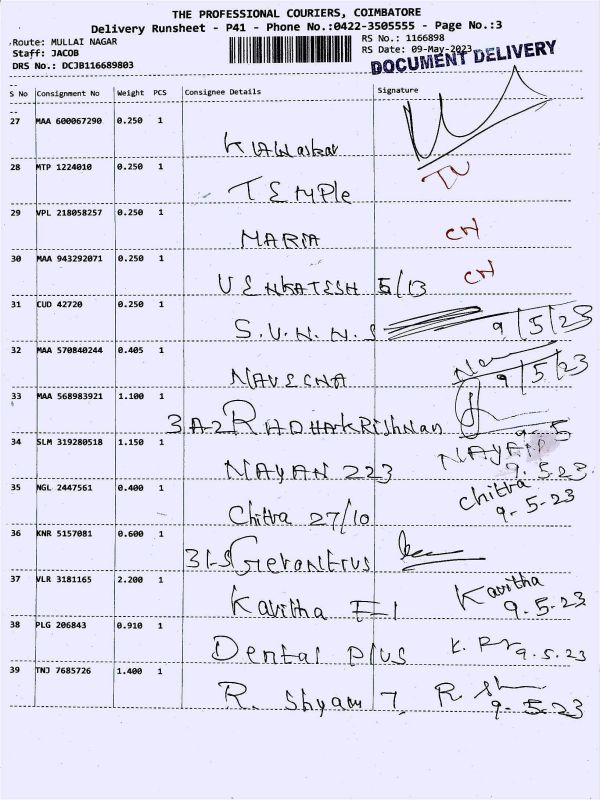 THE PROFESSIONAL COURIERS, COIMBATORE
Delivery Runsheet - P41 - Phone No.:0422-3505555 - Page No.:3
Route: MULLAI NAGAR
RS No.: 1166898
Staff: JACOB
RS Date: 09-May-2023
DRS No.: DCJB116689803
DOCUMENT DELIVERY
S No Consignment No Weight PCS Consignee Details Signature
27 MAA 600067290 0.250 1
28 MTP 1224010 0.250 1
TEMPLe
29 VPL 218058257 0.250 1
MARIA CH
30 MAA 943292071 0.250 1 CH
VENKATESH 5/13
31 CUD 42720 0.250 1
S.V.N.N.S 9/5/23
32 MAA 570840244 0.405 1
NAVEENA 9/5/23
33 MAA 568983921 1.100 1
3A2 RADHAKRIShNan 9.5
34 SLM 319280518 1.150 1 NAYAN
NAYAN 223 9.5.23
35 NGL 2447561 0.400 1 Chitra
Chitra 27/10 9-5-23
36 KNR 5157081 0.600 1
37 VLR 3181165 2.200 1 Kavitha
Kavitha F-1 9.5.23
38 PLG 206843 0.910 1
Dental Plus 9.5.23
39 TNJ 7685726 1.400 1
R. Shyam 7, R. Sh
9-5-23